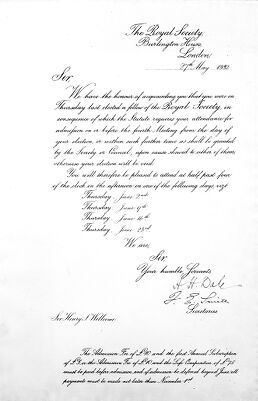 The Royal Society,
Burlington House,
London.
27th May 1932
Sir
We have the honour of acquainting you that you were on
Thursday last elected a fellow of the Royal Society, in
consequence of which the Statute requires your attendance for
admission on or before the fourth Meeting from the day of
your election, or within such further time as shall be granted
by the Society or Council, upon cause shewed to either of them;
otherwise your election will be void.
You will therefore be pleased to attend at half past four
of the clock in the afternoon on one of the following days, viz.
Thursday June 2nd
Thursday June 9th
Thursday June 16th
Thursday June 23rd
We are,
Sir,
Your humble Servants
H H Dale
F. E. Smith
Secretaries
Sir Henry S. Wellcome.
The Admission Fee of £10 and the first Annual Subscription
of the Admission Fee of £10 and the Life Composition of
must be paid before admission, and if admission be deferred beyond June, all
payments must be made not later than November 1st